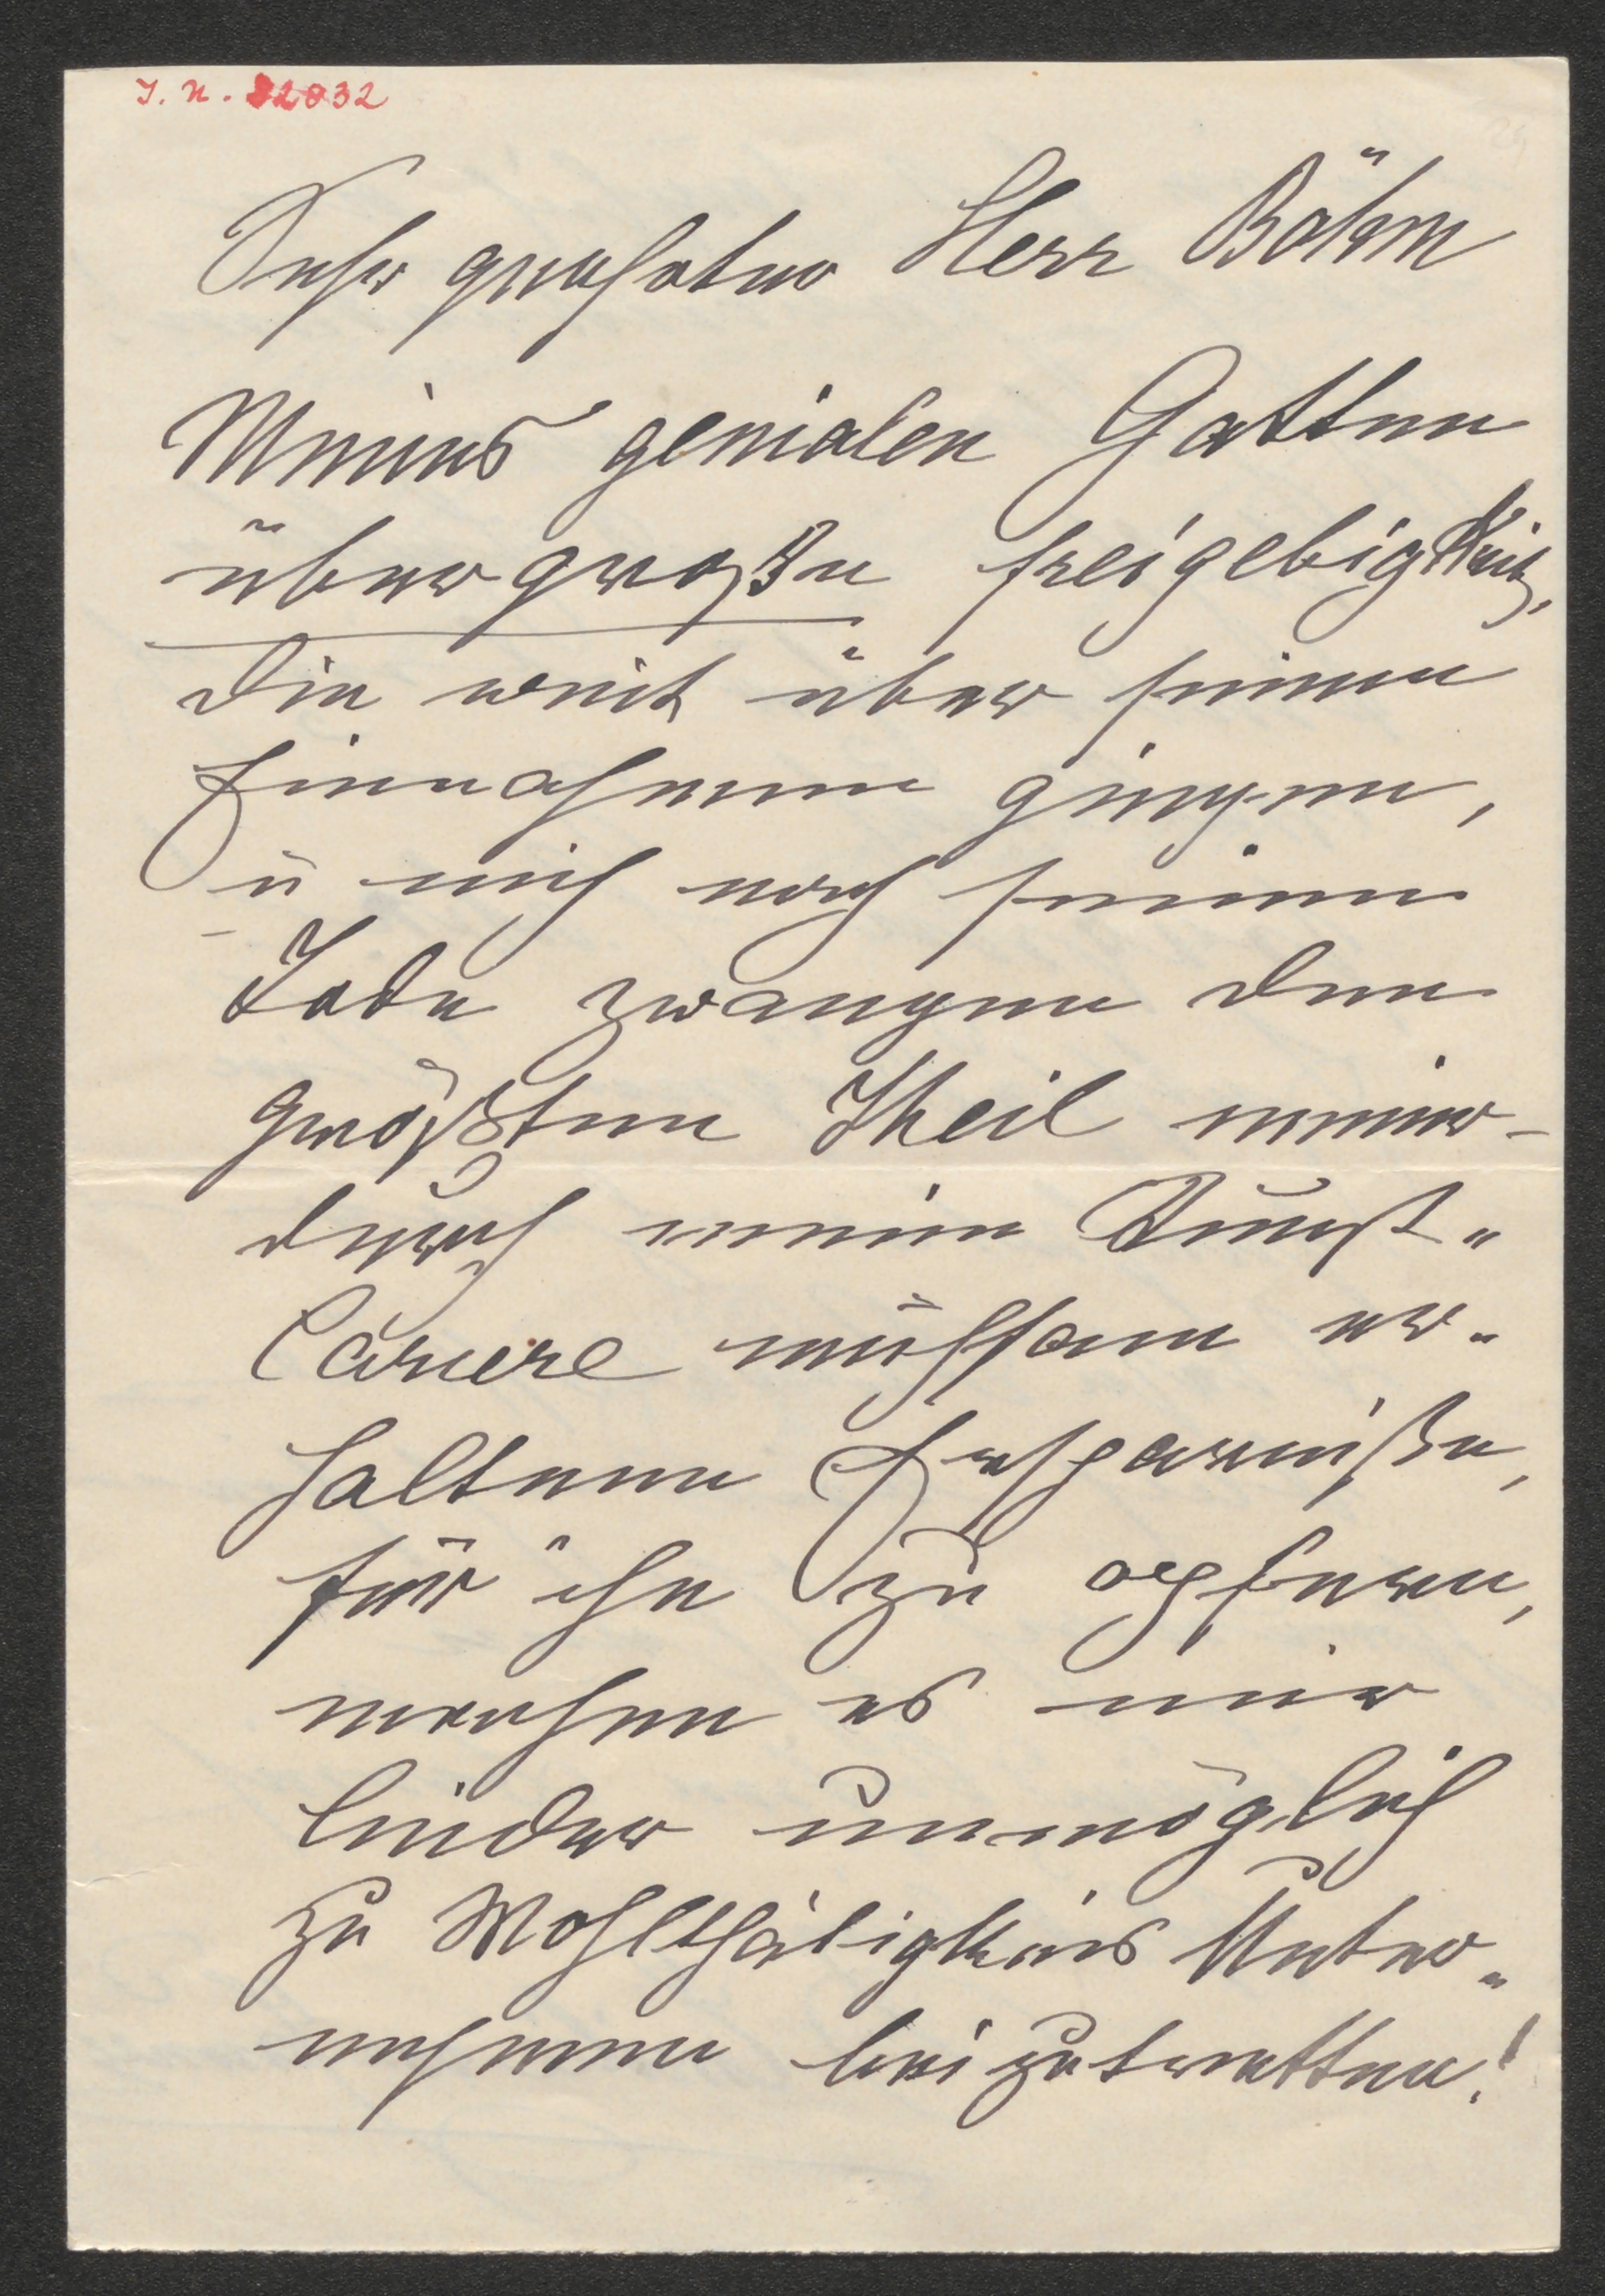 J. N. 82032
Sehr geehrter Herr Böhm
Meines genialen Gatten
übergroße freigebigkeit,
die weit über seinen
Einnahmen gingen,
u mich nach seinem
Tode zwangen den
größten Theil meiner
durch meine Kunst„
Cariere mühsam er„
haltenen Ersparniße,
für ihn zu opfern,
machen es mir
leider unmöglich
zu Wohlthätigkeits Unter„
nehmen beizutretten!